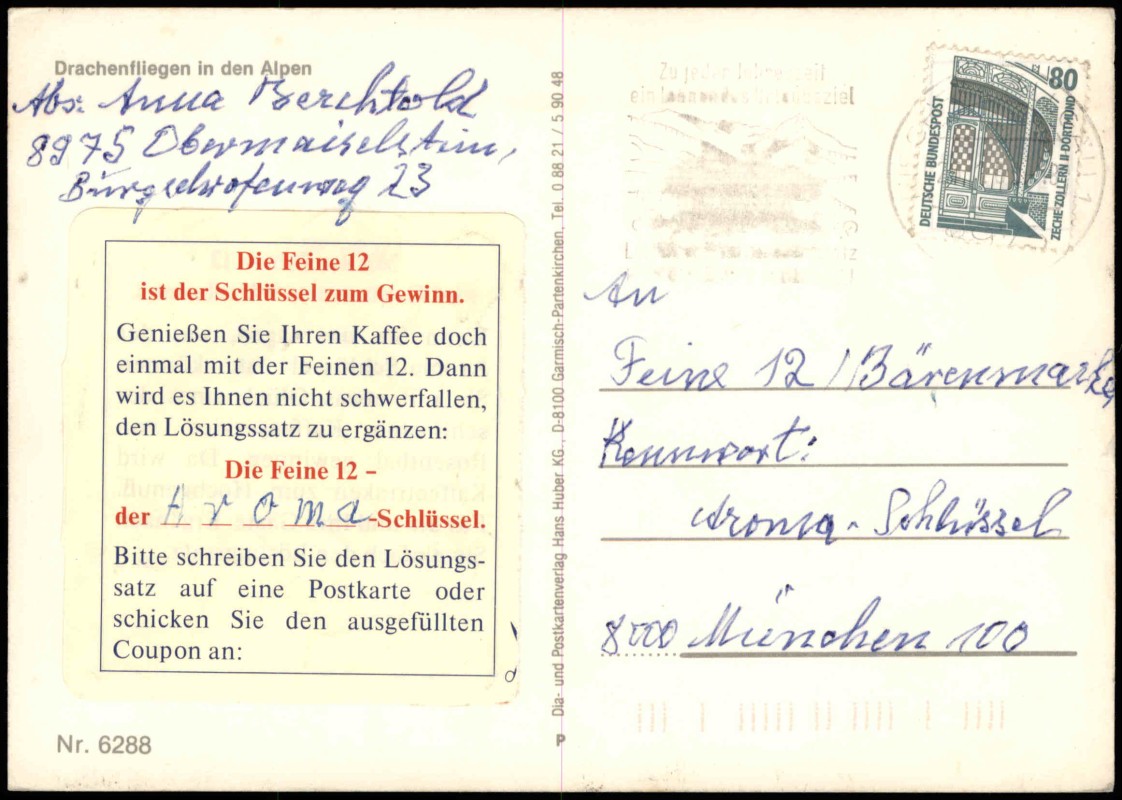 Drachenfliegen in den Alpen
Abs: Anna Berchtold
8975 Obermaiselstein,
Burgschrofenweg 23
Die Feine 12
ist der Schlüssel zum Gewinn.
Genießen Sie Ihren Kaffee doch
einmal mit der Feinen 12. Dann
wird es Ihnen nicht schwerfallen,
den Lösungssatz zu ergänzen:
Die Feine 12 –
der Aroma-Schlüssel.
Bitte schreiben Sie den Lösungs-
satz auf eine Postkarte oder
schicken Sie den ausgefüllten
Coupon an:
Nr. 6288
Dia- und Postkartenverlag Hans Huber KG., D-8100 Garmisch-Partenkirchen, Tel. 0 88 21 / 5 90 48
P
Zu jeder Jahreszeit
ein lohnendes Urlaubsziel
80
DEUTSCHE BUNDESPOST
ZECHE ZOLLERN II · DORTMUND
An
Feine 12 / Bärenmarke
Kennwort:
Aroma - Schlüssel
8000 München 100